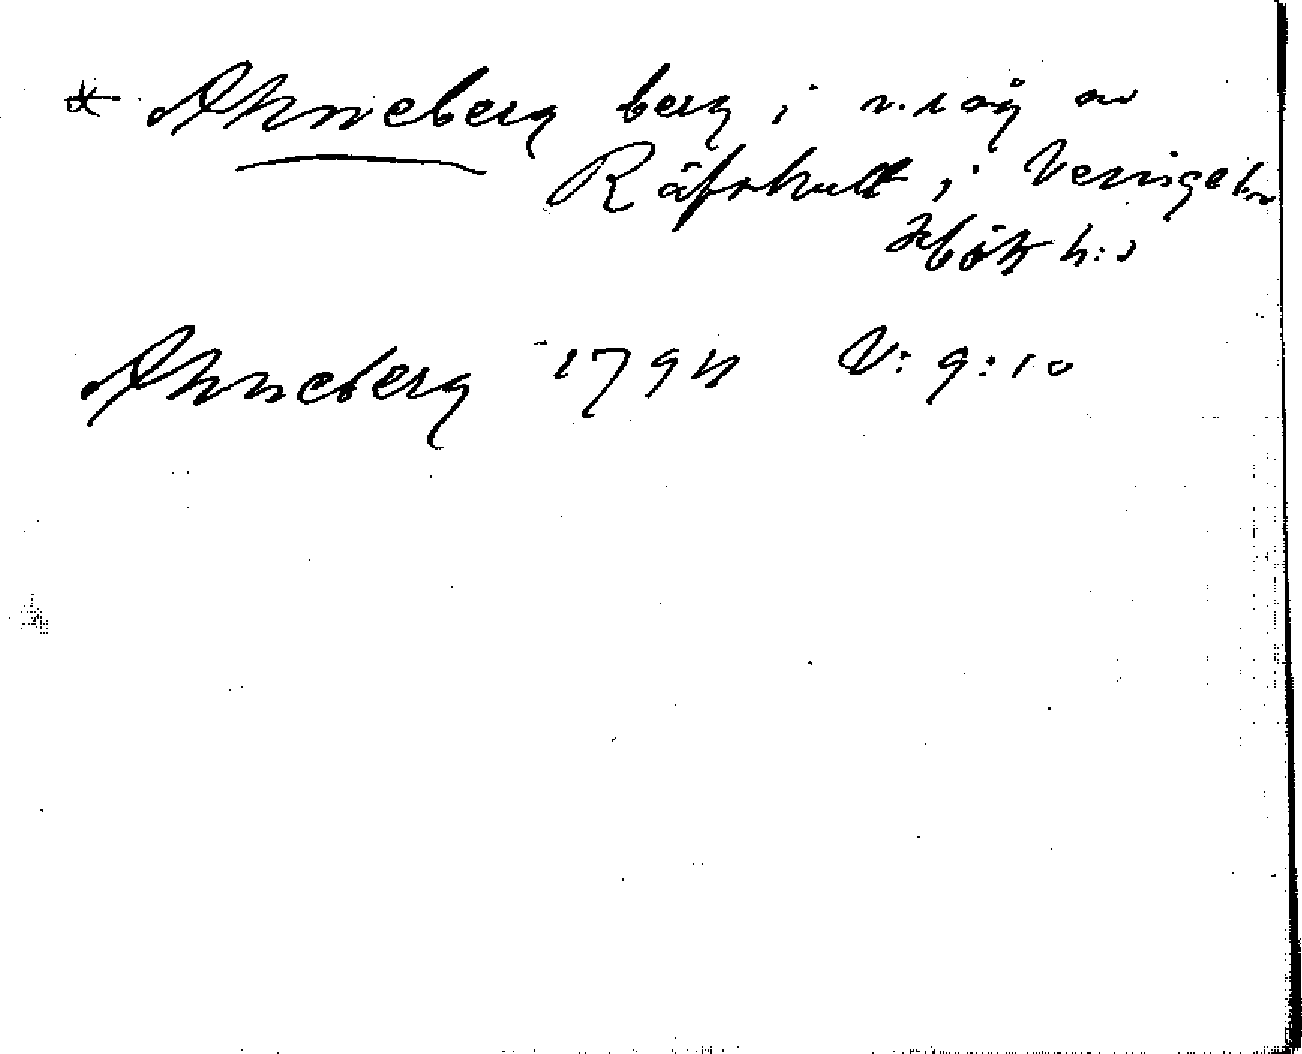 * Ahneberg berg i n. råg av
Räfshult, i Veinge sn
Höks h:d
Ahneberg 1794 V: 9:10